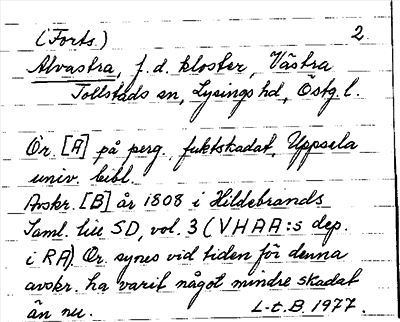 (Forts.) 2.
Alvastra, f.d. kloster, Västra
Tollstads sn, Lysings hd, Östg. l.
Or. [A] på perg., fuktskadat, Uppsala
univ. bibl.
Avskr. [B] år 1808 i Hildebrands
Saml. till SD, vol. 3 (VHAA:s dep.
i RA). Or. synes vid tiden för denna
avskr. ha varit något mindre skadat
än nu. L-t.B. 1977.